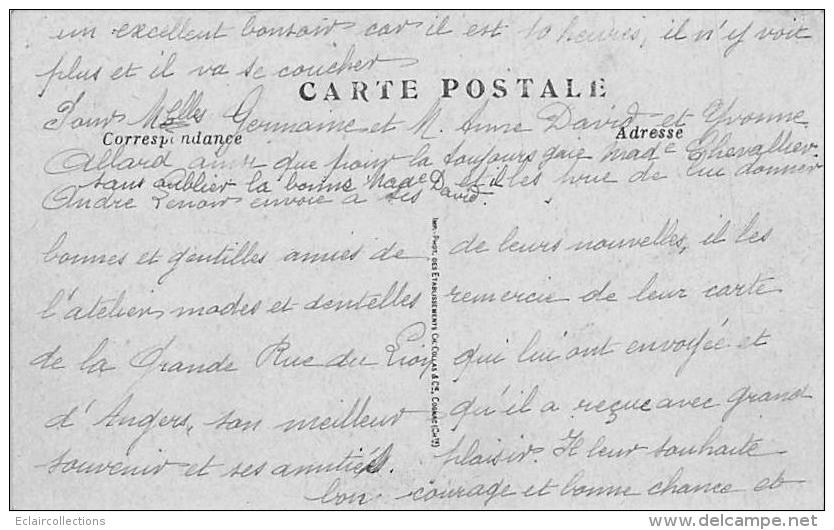 un excellent bonsoir car il est 10 heures, il n'y voit
plus et il va se coucher
CARTE POSTALE
Pour Melles Germaine et M. Anne David et Yvonne
Correspondance
Adresse
Allard ainsi que pour la toujours gaie Made Chevallier
sans oublier la bonne Made David.
André Lenoir envoie à ses
bonnes et gentilles amies de
l'atelier modes et dentelles
de la Grande Rue du Lion
d'Angers, son meilleur
souvenir et ses amitiés.
IMP.-PHOT. DES ETABLISSEMENTS CH. COLLAS & Cie, COGNAC (Cte)
et il les prie de lui donner
de leurs nouvelles, il les
remercie de leur carte
qui lui ont envoyée et
qu'il a reçue avec grand
plaisir. Il leur souhaite
bon courage et bonne chance et
Eclaircollections
www.delcampe.net